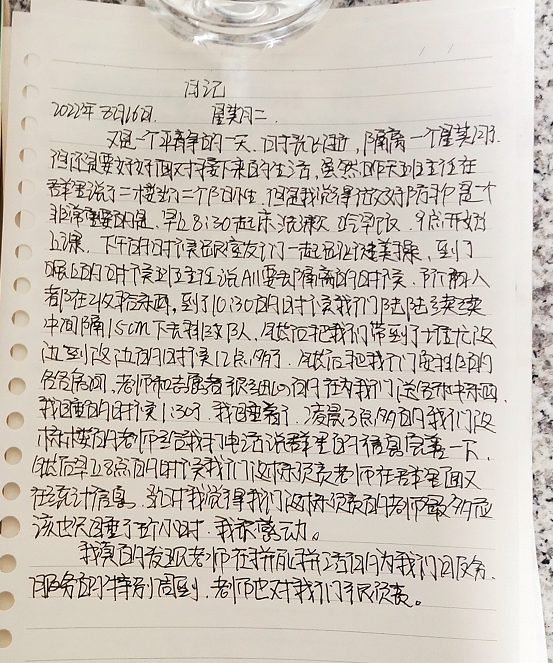 日记
2022年8月16日. 星期二.
又是一个平静的一天、时光飞逝，隔离一个星期了.
但还是要好好面对接下来的生活，虽然昨天班主任在
群里说了二楼出了二个阳性. 但是我觉得做好防护是个
非常重要的是. 早上8:30起床洗漱 吃早饭. 9点开始
上课. 下午的时候跟室友们一起跳健美操，到了
晚上的时候班主任说All要去隔离的时候. 所有人
都在收拾东西，到了10:30的时候我们陆陆续续
中间隔15cm下去排队人，然后把我们带到了
边到这边的时候12点多了. 然后把我们安排的
各各房间，老师和志愿者很细心的在为我们送各种东西.
我睡的时候1:30了. 我睡着了. 凌晨3点多的我们这
栋楼的老师还给我打电话说群里的信息完善一下.
然后早上8点的时候我们这栋负责老师在群里面又
在统计信息. 当时我觉得我们这栋负责的老师最多应
该也只睡了5个小时. 我很感动。
我真的发现老师在拼死拼活的为我们服务.
服务的特别周到. 老师也对我们很负责。